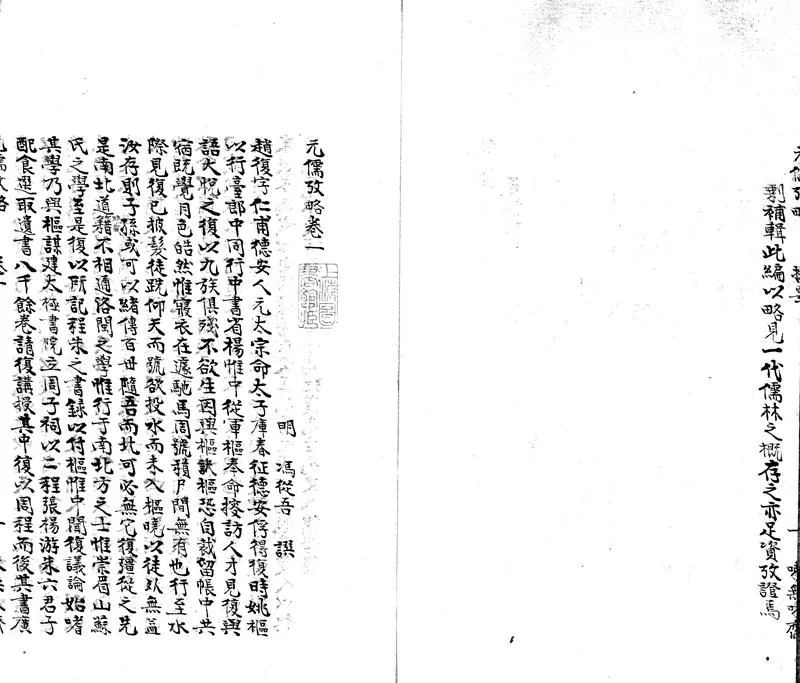 元儒攷略
剽補輯此編以略見一代儒林之概存之亦足資攷證焉
元儒攷略卷一
明 馮從吾 撰
趙復字仁甫德安人元太宗命太子庫春征德安俘得復時姚樞
以行臺郎中同行中書省楊惟中從軍樞奉命搜訪人才見復與
語大悅之復以九族俱殘不欲生因與樞訣樞恐自裁留帳中共
宿既覺月色皓然惟寢衣在遽馳馬周號積尸間無有也行至水
際見復已披髮徒跣仰天而號欲投水而未入樞曉以徒死無益
汝存耶子孫或可以緒傳百世隨吾而北可必無它復彊從之先
是南北道籍不相通洛閩之學惟行于南北方之士惟崇眉山蘇
氏之學至是復以所記程朱之書錄以付樞惟中聞復議論始嗜
其學乃與樞謀建太極書院立周子祠以二程張楊游朱六君子
配食選取遺書八千餘卷請復講授其中復以周程而後其書廣